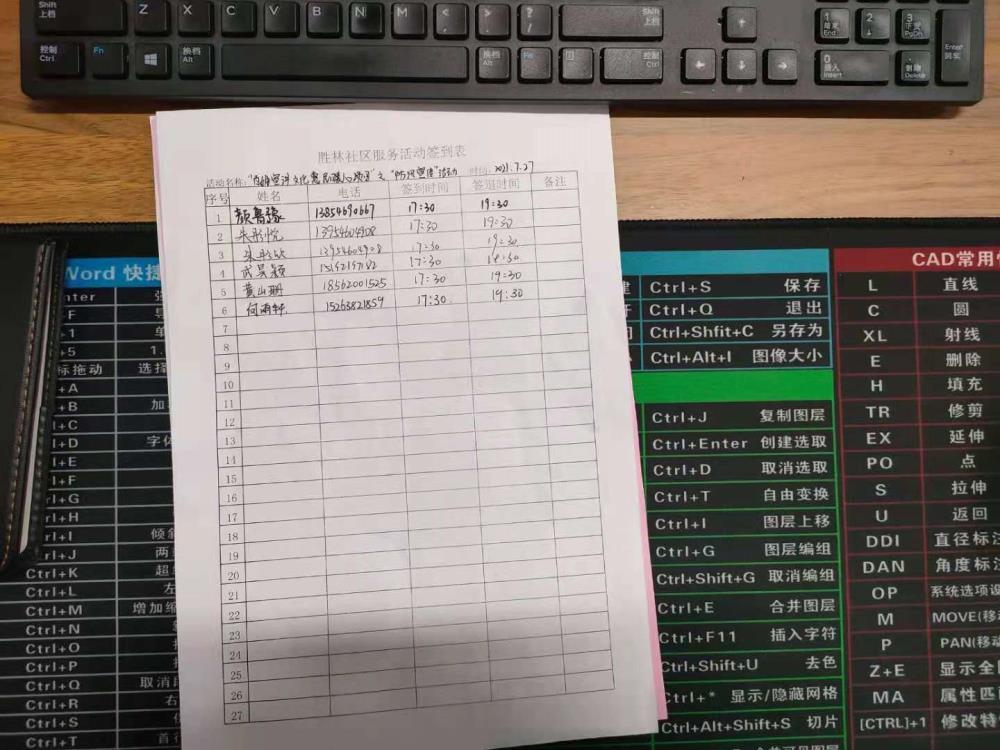 Shift
上档
Z X C V B N M < > ? Shift
上档
1
End
2
3
PgDn
控制
Ctrl
Fn
换档
Alt
换档
Alt
Fn
控制
Ctrl
0
插入
Insert
删除
Delete
Enter
回车
胜林社区服务活动签到表
活动名称: 时间: 2021.7.27
序号 姓名 电话 签到时间 签退时间 备注
1 颜鲁豫 13854690667 17:30 19:30
2 朱彤悦 13954604908 17:30 19:30
3 朱彤欣 13954604908 17:30 19:30
4 武昊颖 15192197182 17:30 19:30
5 黄山珊 18562001525 17:30 19:30
6 何雨轩 15263821859 17:30 19:30
7
8
9
10
11
12
13
14
15
16
17
18
19
20
21
22
23
24
25
26
27
Word 快捷
nter
+F
+1
+5 1.
标拖动 选择
+A
+B 加
+C
+D 字体
+E
+F
+G
+H
+I 倾斜
+J 两
Ctrl+K 超
Ctrl+L 左
Ctrl+M 增加缩
Ctrl+N
Ctrl+O
Ctrl+P
Ctrl+Q 取消段
Ctrl+R 右
Ctrl+S
Ctrl+T 首行
Ctrl+S 保存
Ctrl+Q 退出
Ctrl+Shfit+C 另存为
Ctrl+Alt+I 图像大小
Ctrl+J 复制图层
Ctrl+Enter 创建选取
Ctrl+D 取消选取
Ctrl+T 自由变换
Ctrl+I 图层上移
Ctrl+G 图层编组
Ctrl+Shift+G 取消编组
Ctrl+E 合并图层
Ctrl+F11 插入字符
Ctrl+Shift+U 去色
Ctrl+* 显示/隐藏网格
Ctrl+Alt+Shift+S 切片
合并可见图层
CAD常用
L 直线
C 圆
XL 射线
E 删除
H 填充
TR 修剪
EX 延伸
PO 点
S 拉伸
U 返回
DDI 直径标注
DAN 角度标注
OP 系统选项设
M MOVE(移
P PAN(移动
Z+E 显示全
MA 属性匹
[CTRL]+1 修改特